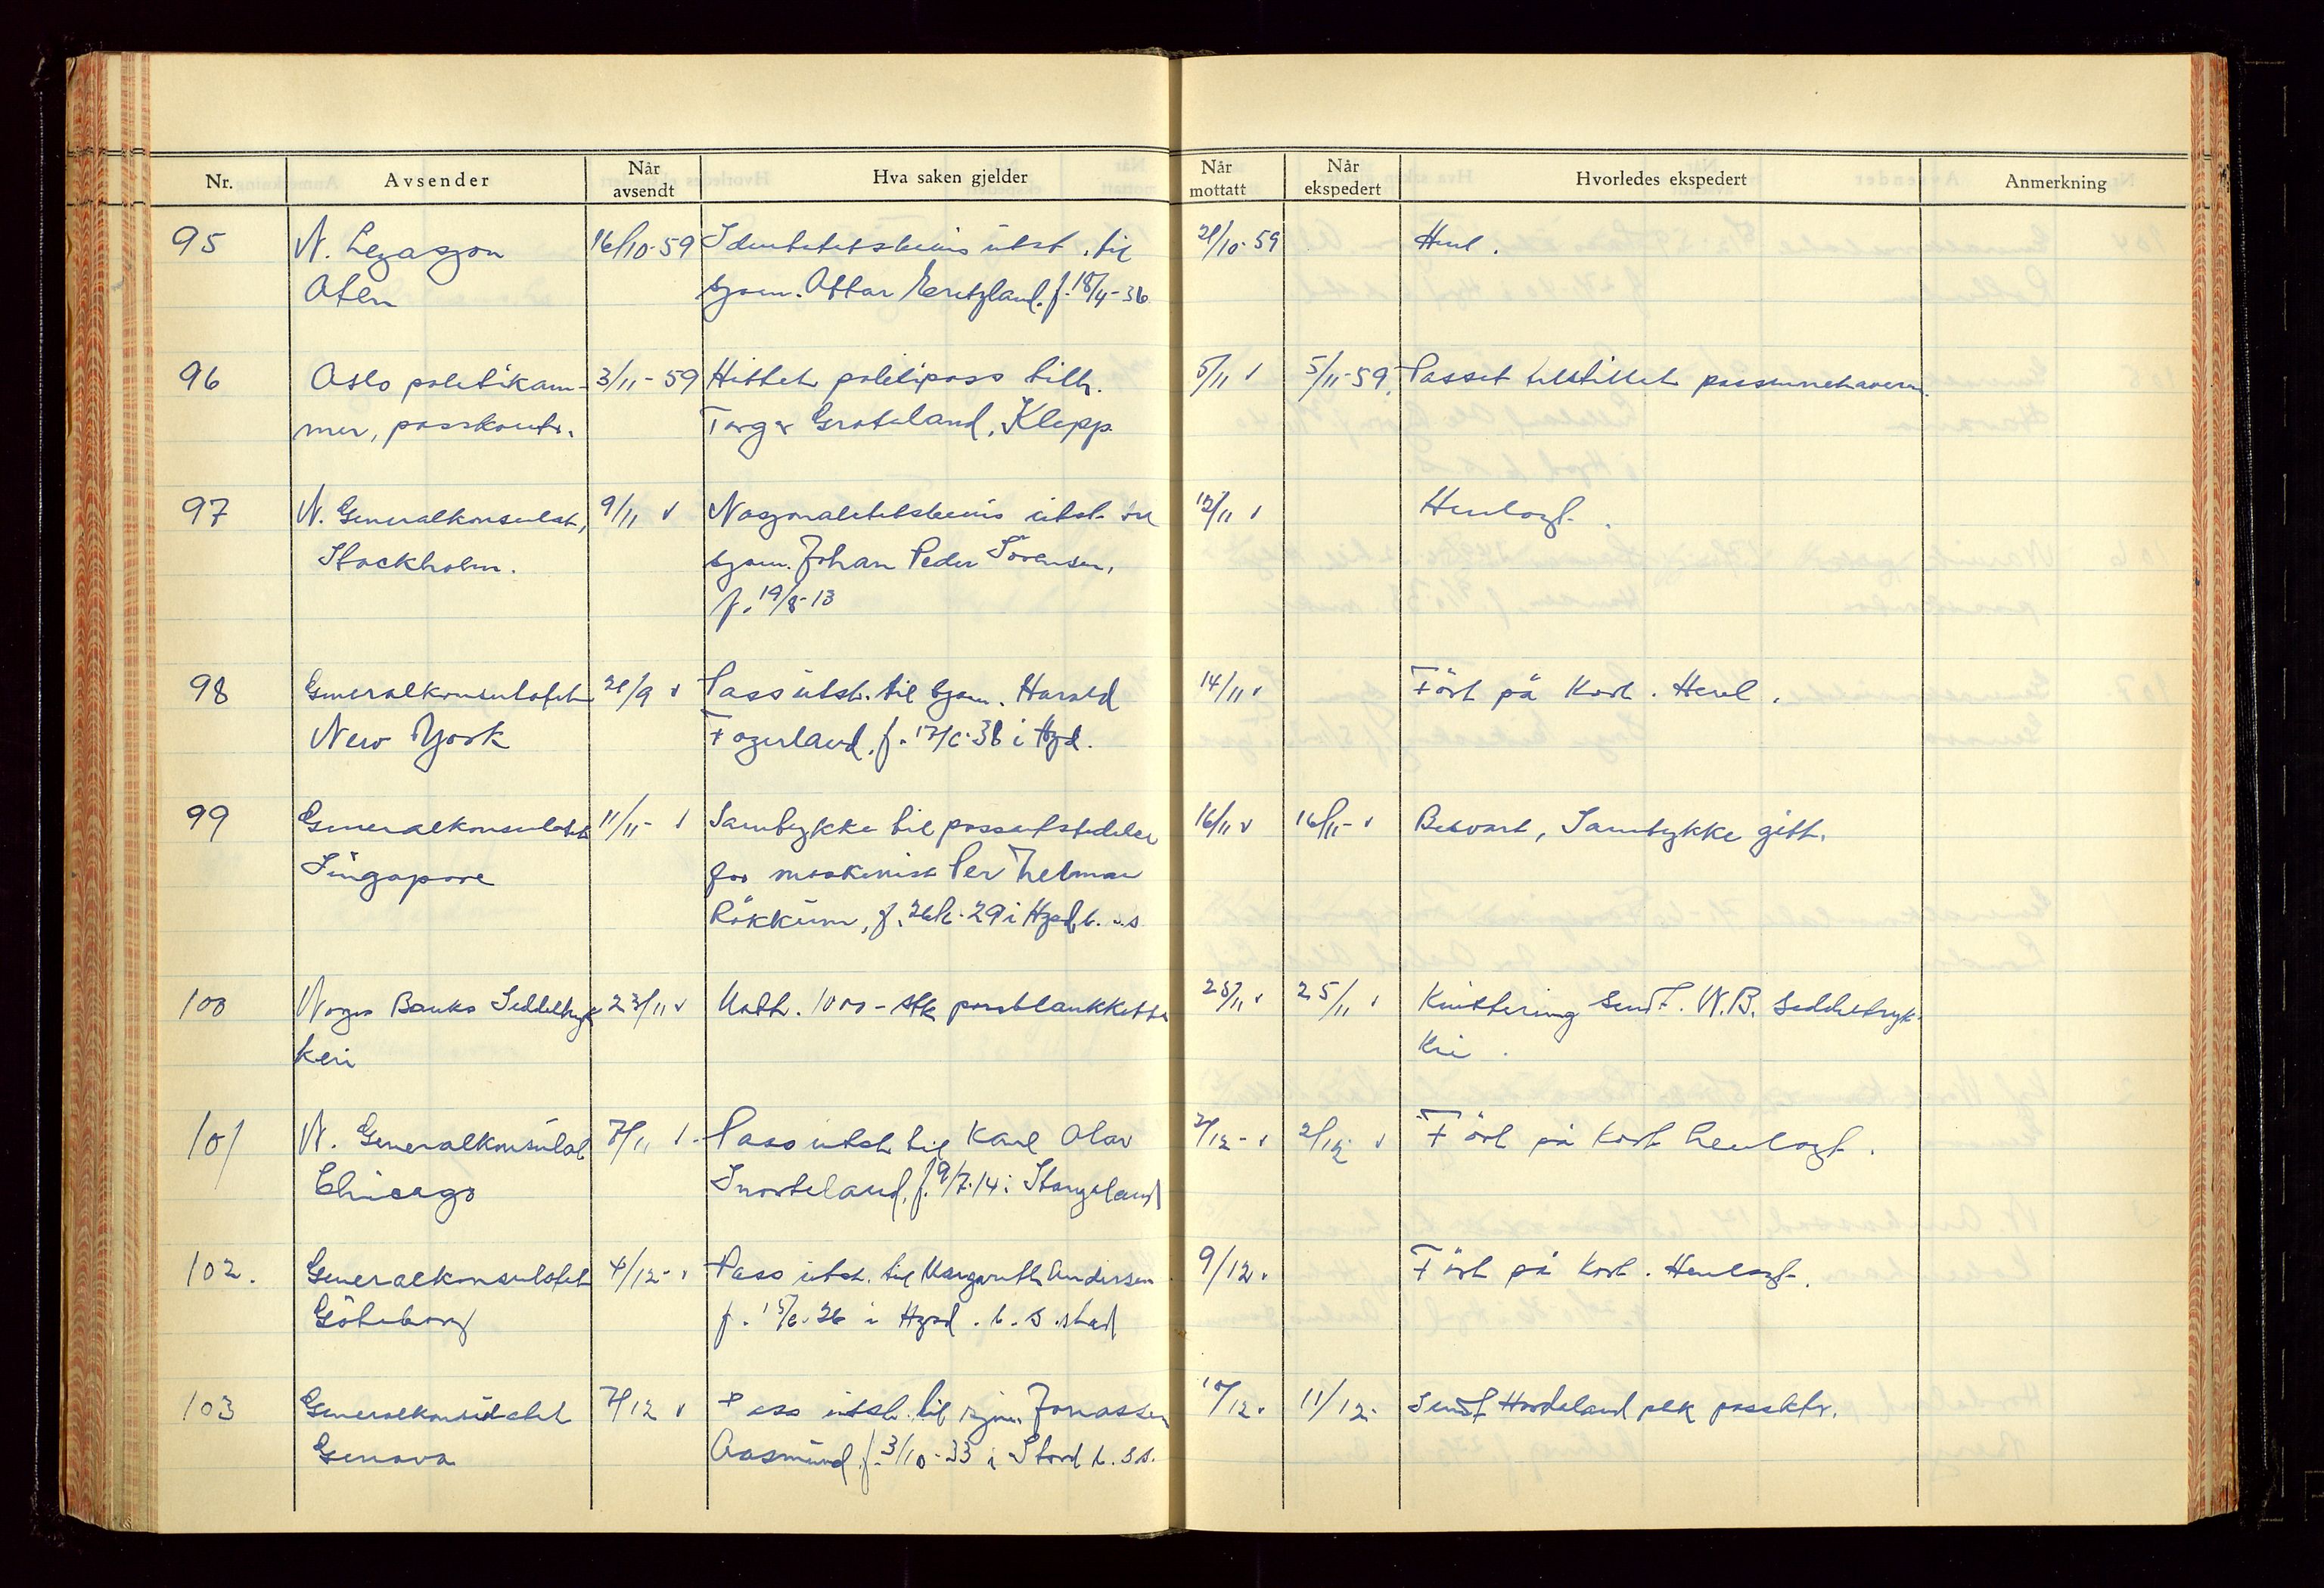 Nr. Avsender Når avsendt Hva saken gjelder Når mottatt Når ekspedert Hvorledes ekspedert Anmerkning
95 N. Legasjon 16/10-59 Identitetsbevis utst. til 21/10-59 Henl.
Aten sjøm. Ottar f. 18/4-36
96 Oslo politikam- 3/11-59 Hittet politipass tilh. 5/11 5/11-59 Passet tilstillet passinnehaveren.
mer, passkontr. Torger Grateland, Klepp
97 N. Generalkonsulat, 9/11 Nasjonalitetsbevis utst. til 12/11 Henlagt.
Stockholm. sjøm. Johan Peder Sörensen,
f. 19/8-13
98 Generalkonsulatet 21/9 Pass utst. til sjøm. Harald 14/11 Fört på kort. Henl.
New York Fagerland, f. 17/6-36 i Hgsd.
99 Generalkonsulatet 11/11- Samtykke til passutstedelse 16/11 16/11- Besvart, Samtykke gitt.
Singapore for maskinist Per Thelman
Rökkum, f. 29 i Hgsd, b. s.s
100 Norges Banks Seddeltryk 23/11 Mott. 1000- stk passblanketter 25/11 25/11 Kvittering sendt. N.B. Seddeltryk-
keri keri.
101 N. Generalkonsulat 7/11 Pass utst. til Karl Olav 2/12- 2/12 Fört på kort henlagt.
Chicago Snorteland, f. 9/7-14 i Stangaland
102. Generalkonsulatet 4/12- Pass utst. til Margareth Andersen 9/12 Fört på kort. Henlagt.
Göteborg f. 15/6-26 i Hgsd. b. s. sted
103 Generalkonsulatet 7/12 Pass utst. til sjøm. Jonassen 10/12 11/12- Sendt Hordaland plk passktr.
Genova Aasmund, f. 3/10-33 i Stord b. s.s.